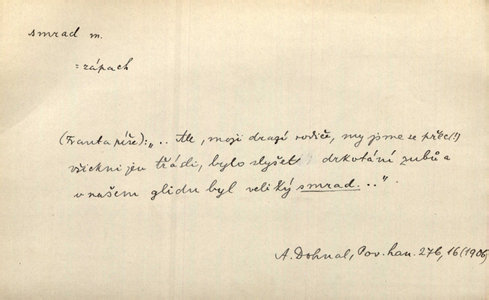 smrad m.
= zápach
(Franta píše): „.. Ale, moji drazí rodiče, my jsme se přec(!)
všickni jen třádi, bylo slyšet drkotání zubů a
v našem glidu byl veliký smrad..".
A. Dohnal, Pov. han. 276, 16 (1906)